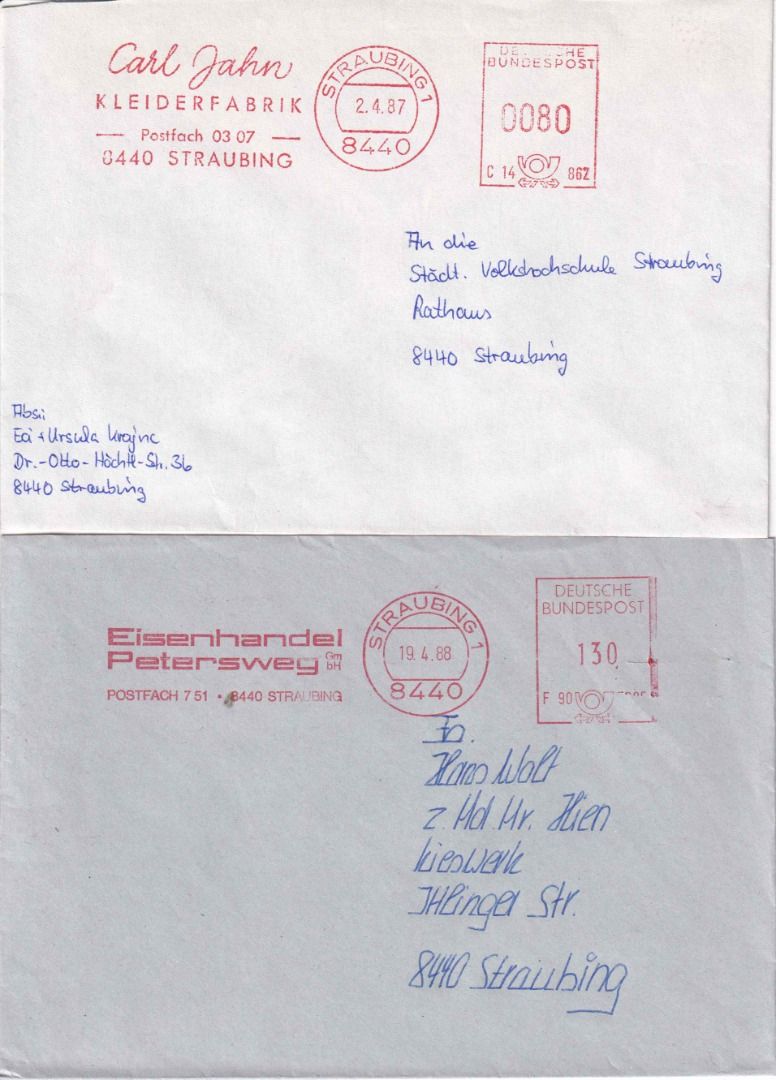 Carl Jahn
KLEIDERFABRIK
Postfach 03 07
8440 STRAUBING
STRAUBING 1
2.4.87
8440
DEUTSCHE
BUNDESPOST
0080
C 14 862
An die
Städt. Volkshochschule Straubing
Rathaus
8440 Straubing
Abs.:
Edi + Ursula Krajnc
Dr.-Otto-Höchtl-Str. 36
8440 Straubing
Eisenhandel
Petersweg GmbH
POSTFACH 7 51 • 8440 STRAUBING
STRAUBING 1
19.4.88
8440
DEUTSCHE
BUNDESPOST
130
F 90
Fa.
Hans Wolf
z. Hd. Hr. Hien
Kieswerk
Ittlinger Str.
8440 Straubing